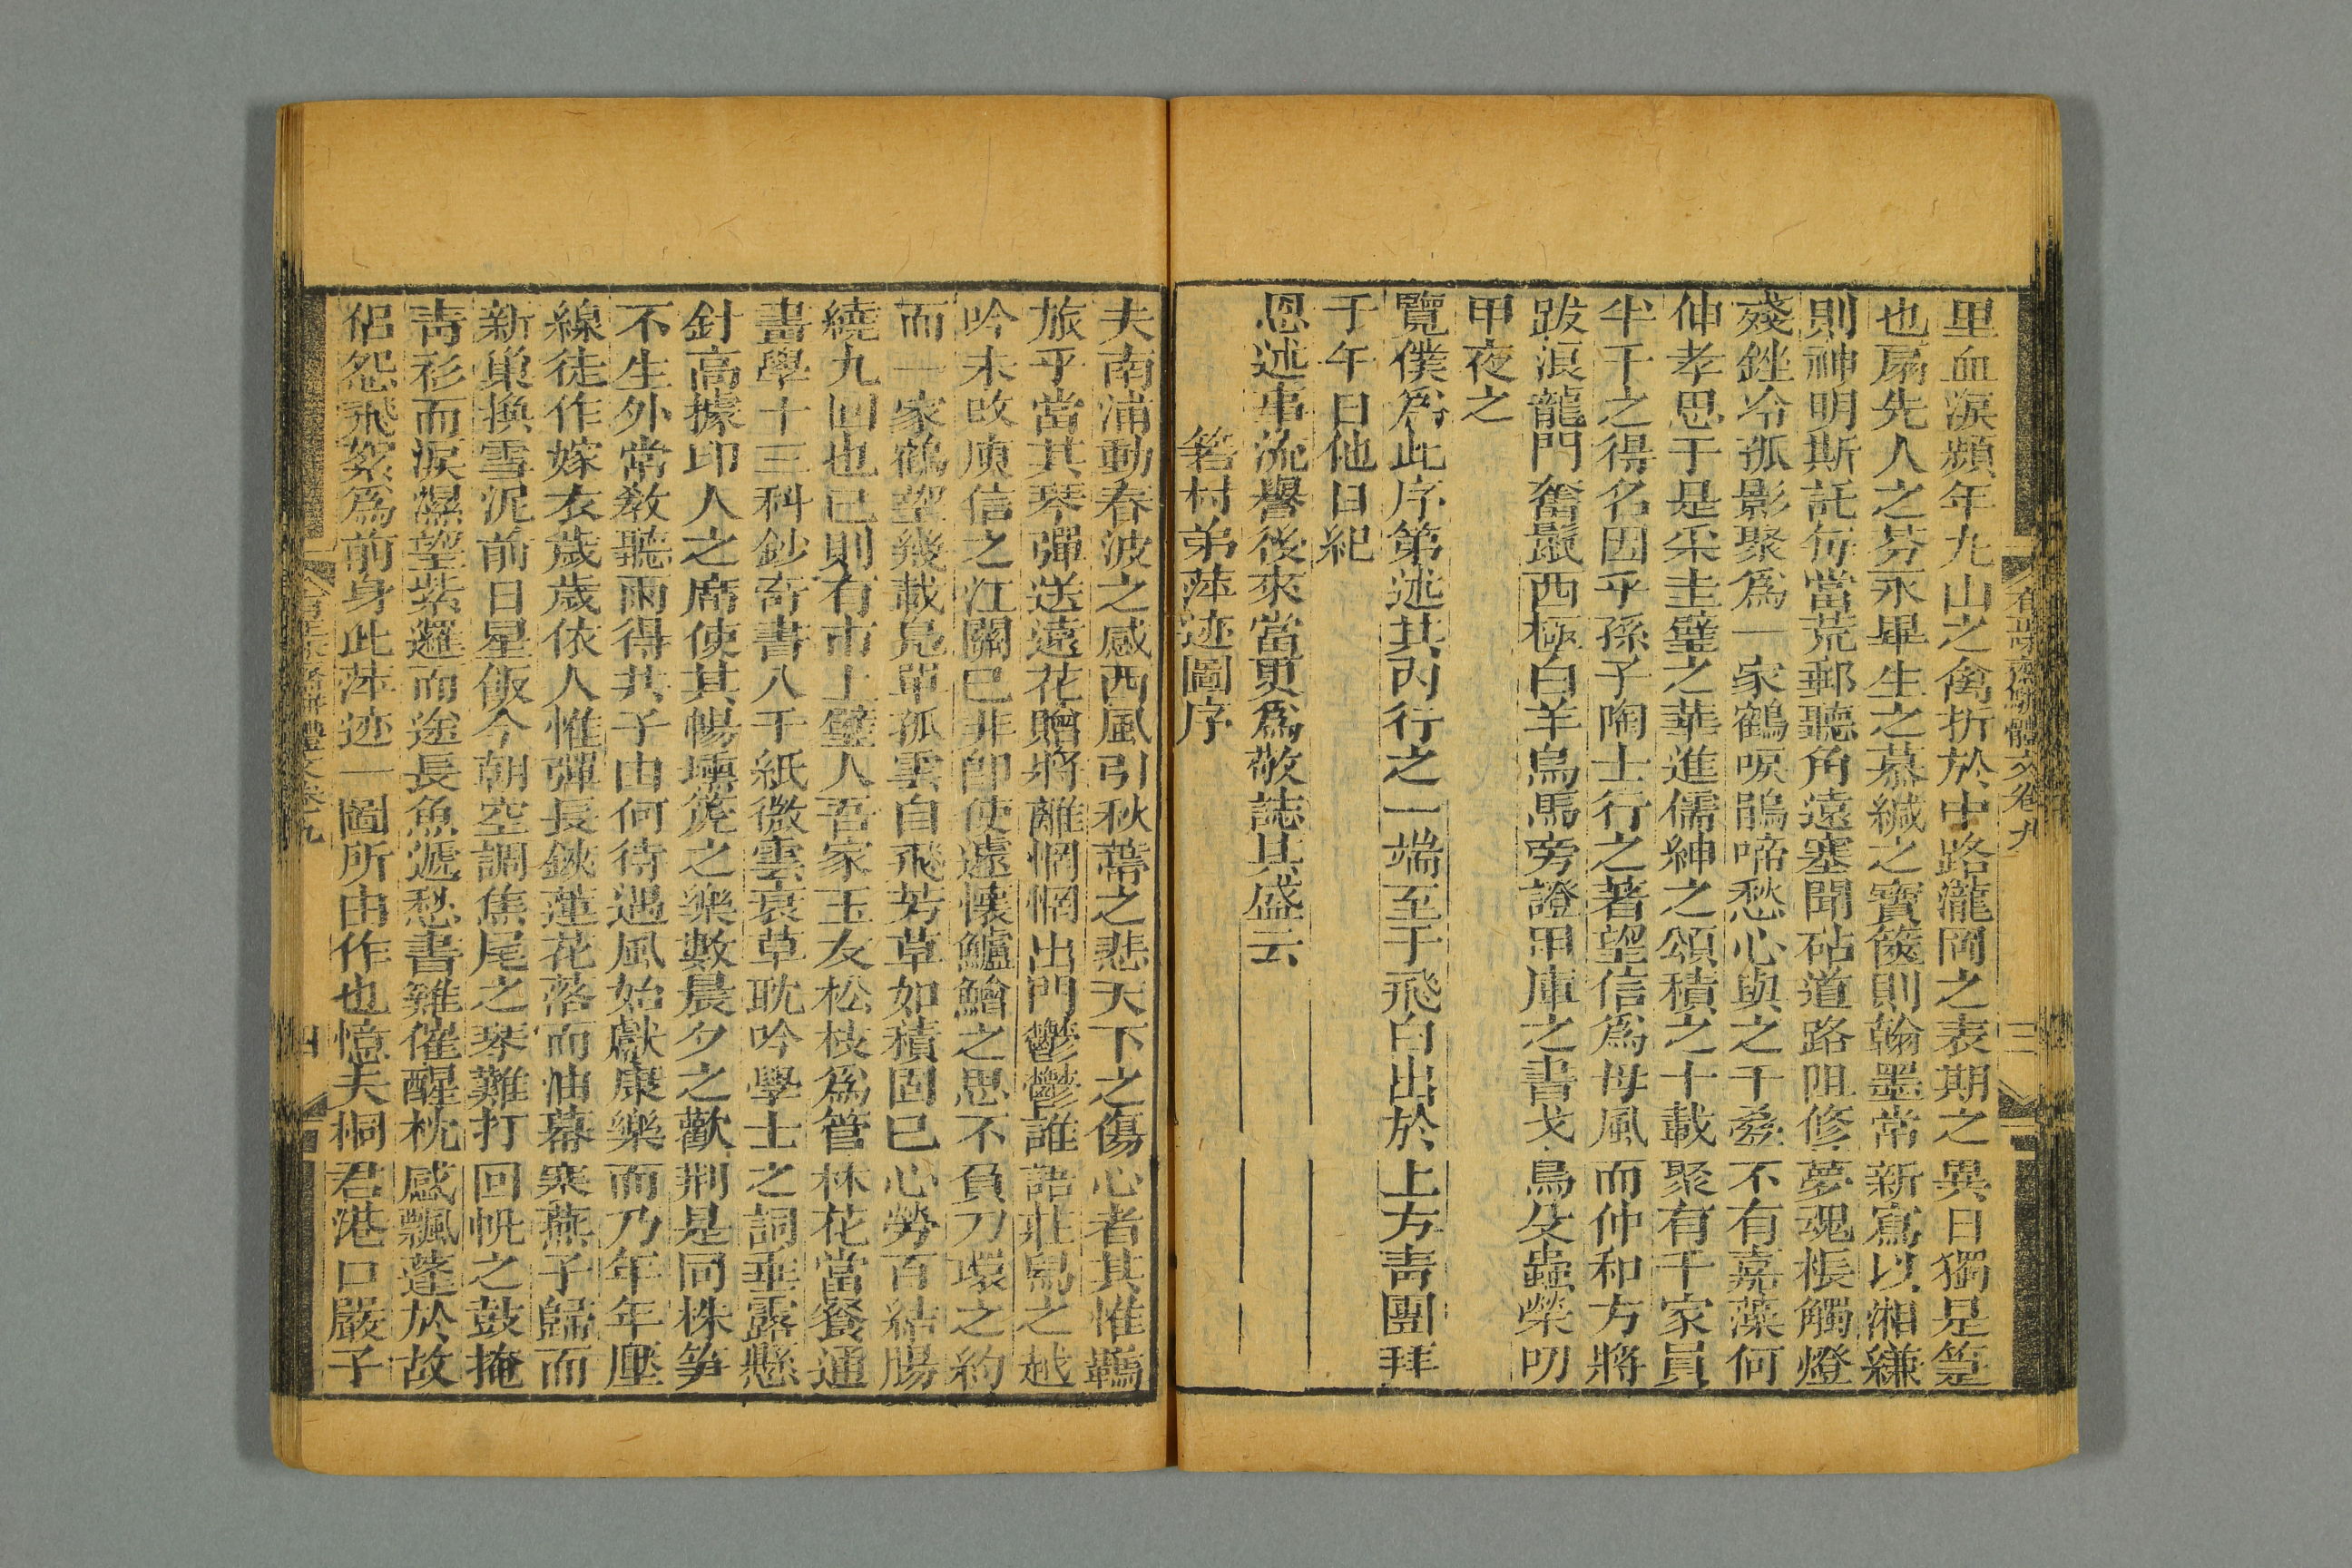 里血淚頻年九山之禽折於中路瀧岡之表期之異日獨是筮
也扇先人之芬永畢生之慕緘之寶篋則翰墨常新寫以湘縑
則神明斯託每當荒郵聽角遠塞聞砧道路阻修夢魂棖觸燈
殘銼冷孤影聚爲一家鶴唳鵑啼愁心與之千疊不有嘉藻何
仲孝思于是采圭璧之華進儒紳之頌積之十載聚有千家員
半千之得名因乎孫子陶士行之著望信爲母風而仲和方將
跋浪龍門奮鬣西極白羊烏馬旁證甲庫之書戈鳥殳蟲榮叨
甲夜之
覽僕爲此序第述其內行之一端至于飛白出於上方靑團拜
于午日他日紀
恩述事流譽後來當更爲敬誌其盛云
箬村弟萍迹圖序
夫南浦動春波之感西風引秋蔕之悲天下之傷心者其惟羈
旅乎當其琴彈送遠花贈將離惘惘出門鬱鬱誰語莊舄之越
吟未改庾信之江關已非卽使遽懷鱸鱠之思不負刀環之約
而一家鶴望幾載凫單孤雲自飛芳草如積固已心勞百結腸
繞九回也已則有市上璧人吾家玉友松枝爲管林花當餐通
畫學十三科鈔奇書八千紙微雲衰草耽吟學士之詞垂露懸
針高據印人之席使其暢壎箎之樂數晨夕之歡荆是同株笋
不生外常教聽雨得共子由何待遇風始獻康樂而乃年年壓
線徒作嫁衣歲歲依人惟彈長鋏蓮花落而油幕寒燕子歸而
新巢換雪泥前日星飯今朝空調焦尾之琴難打回帆之鼓掩
靑衫而淚濕望紫邏而途長魚遞愁書雞催醒枕感飄蓬於故
侶怨飛絮爲前身此萍迹一圖所由作也憶夫桐君港口嚴子